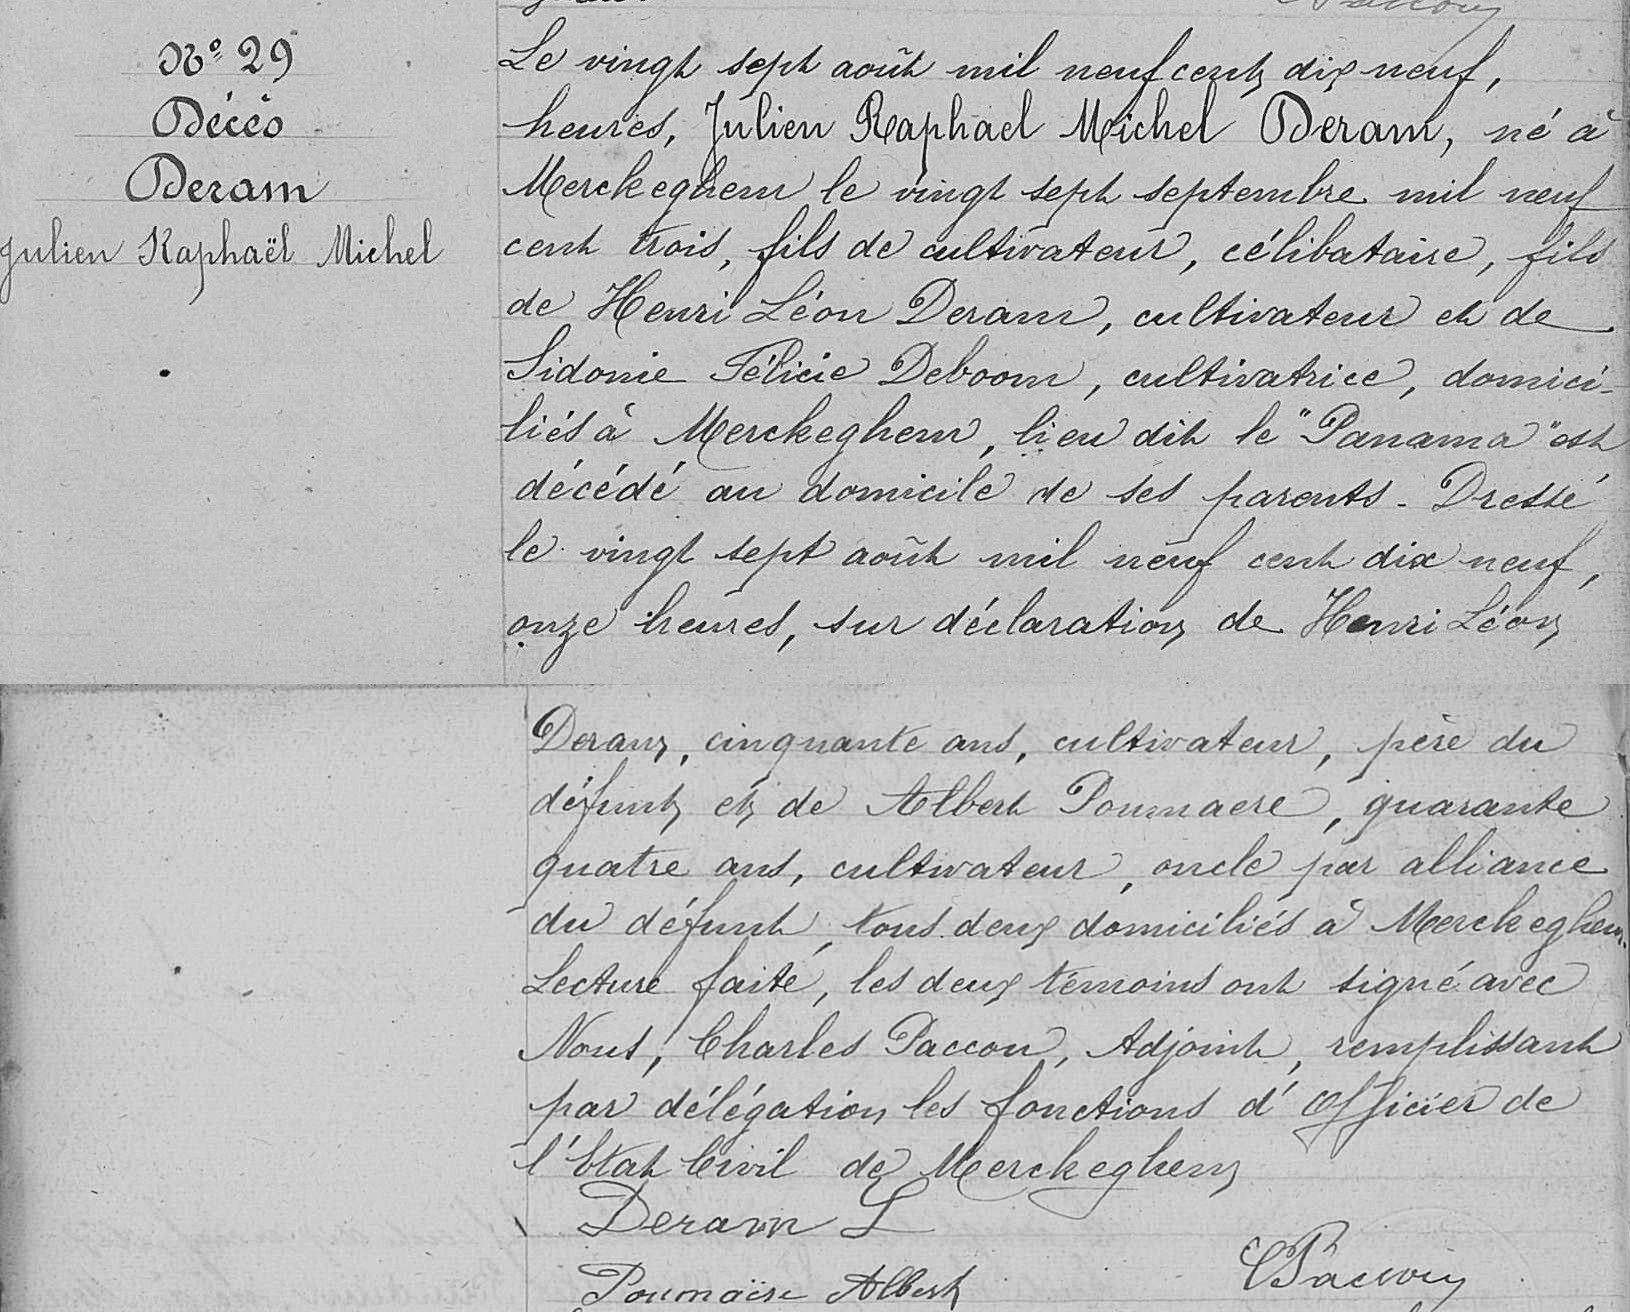 Nº 29
Décès
Deram
Julien Raphaël Michel
Le vingt sept août mil neuf cent dix neuf,
heures, Julien Raphael Michel Deram, né à
Merckeghem le vingt sept septembre mil neuf
cent trois, fils de cultivateur, célibataire, fils
de Henri Léon Deram, cultivateur et de
Sidonie Félicie Deboom, cultivatrice, domici-
liés à Merckeghem, lieu dit le "Panama" est
décédé au domicile de ses parents - Dressé
le vingt sept août mil neuf cent dix neuf,
onze heures, sur déclaration de Henri Léon
Deram, cinquante ans, cultivateur, père du
défunt et de Albert Poumaere, quarante
quatre ans, cultivateur, oncle par alliance
du défunt, tous deux domiciliés à Merckeghem.
Lecture faite, les deux témoins ont signé avec
Nous, Charles Paccou, Adjoint, remplissant
par délégation les fonctions d'Officier de
l'Etat Civil de Merckeghem
Deram L
CPaccou
Poumaëre Albert